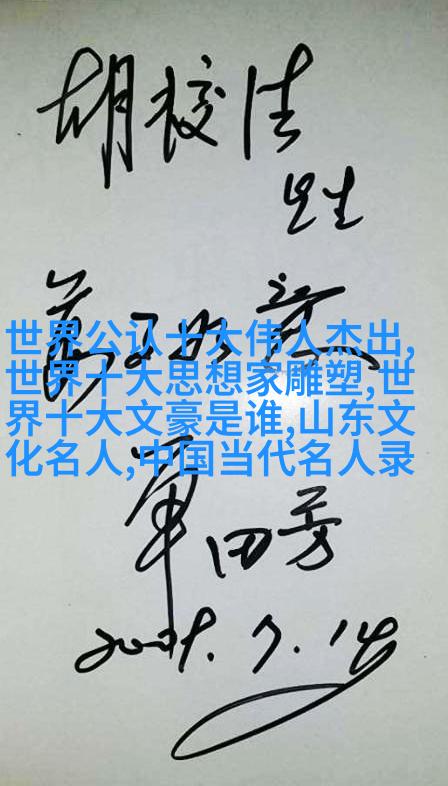 胡校
先生
萬事如意
世界公认十大伟人杰出,
世界十大思想家雕塑,世
界十大文豪是谁,山东文
化名人,中国当代名人录
單田芳
7.14